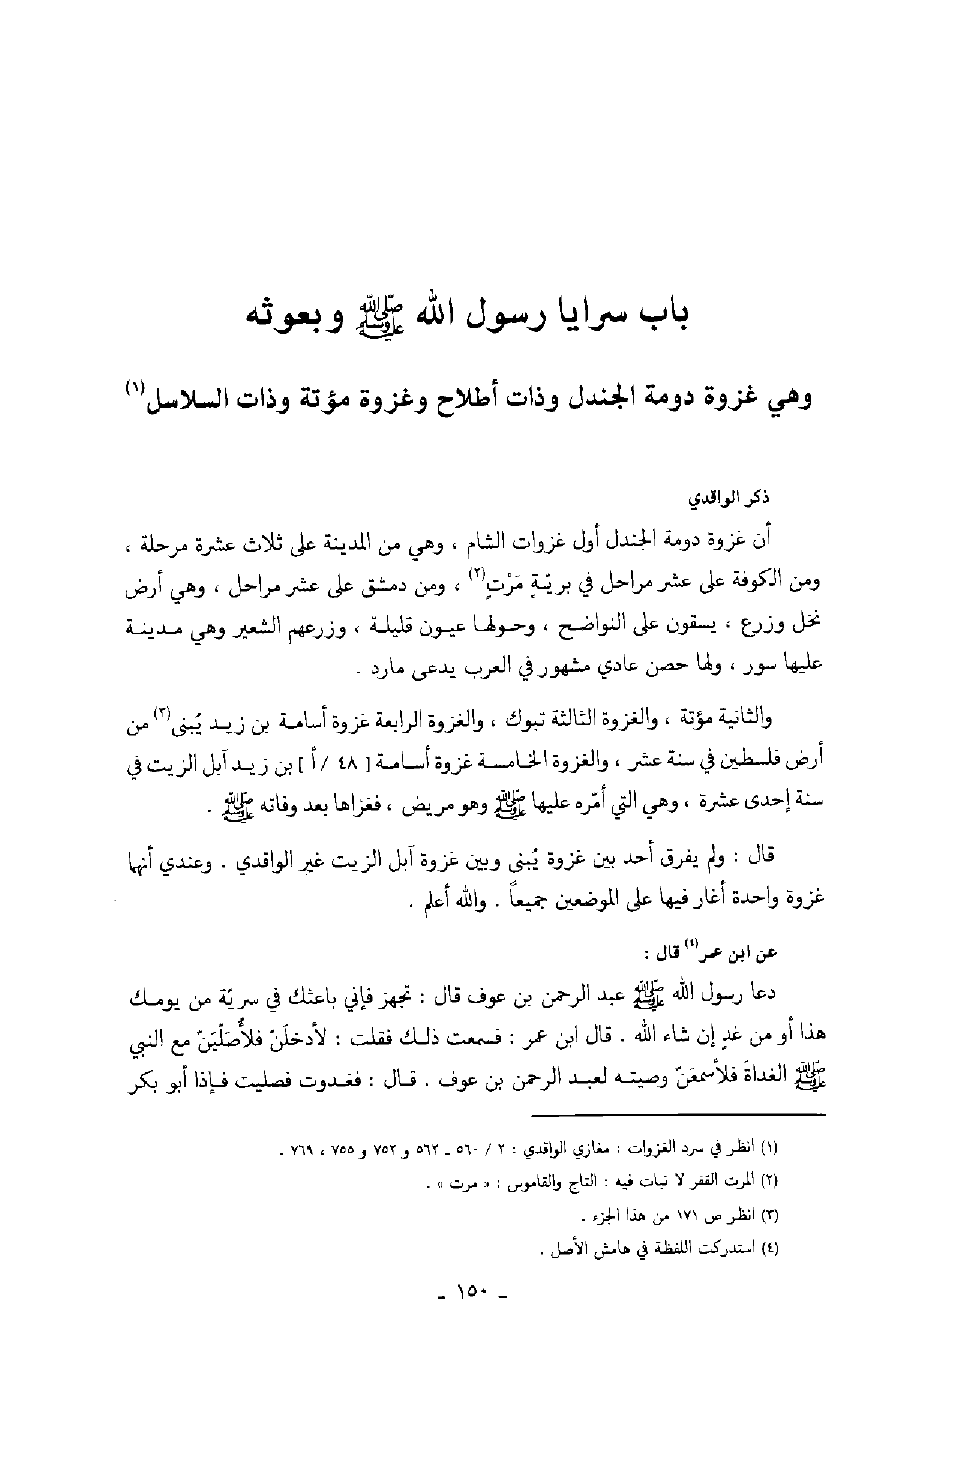 باب سرايا رسول الله ﷺ وبعوثه
وهي غزوة دومة الجندل وذات أطلاح وغزوة مؤتة وذات السلاسل(١)
ذكر الواقدي
أن غزوة دومة الجندل أول غزوات الشام ، وهي من المدينة على ثلاث عشرة مرحلة ،
ومن الكوفة على عشر مراحل في بريّةٍ مَرْتٍ(٢) ، ومن دمشق على عشر مراحل ، وهي أرض
نخل وزرع ، يسقون على النواضح ، وحولها عيون قليلة ، وزرعهم الشعير وهي مدينة
عليها سور ، ولها حصن عادي مشهور في العرب يدعى مارد .
والثانية مؤتة ، والغزوة الثالثة تبوك ، والغزوة الرابعة غزوة أسامة بن زيد يُبنى(٣) من
أرض فلسطين في سنة عشر ، والغزوة الخامسة غزوة أسامة [ ٤٨ /أ ] بن زيد آبل الزيت في
سنة إحدى عشرة ، وهي التي أمّره عليها ﷺ وهو مريض ، فغزاها بعد وفاته ﷺ .
قال : ولم يفرق أحد بين غزوة يُبنى وبين غزوة آبل الزيت غير الواقدي . وعندي أنها
غزوة واحدة أغار فيها على الموضعين جميعاً . والله أعلم .
عن ابن عمر(٤) قال :
دعا رسول الله ﷺ عبد الرحمن بن عوف قال : تجهز فإني باعثك في سريّة من يومك
هذا أو من غدٍ إن شاء الله . قال ابن عمر : فسمعت ذلك فقلت : لأدخلَنّ فلأُصَلِّيَنّ مع النبي
ﷺ الغداةَ فلأسمعَنّ وصيته لعبد الرحمن بن عوف . قال : فغدوت فصليت فإذا أبو بكر
(١) انظر في سرد الغزوات : مغازي الواقدي : ٢ / ٥٦٠ ـ ٥٦٢ و ٧٥٢ و ٧٥٥ ، ٧٦٩ .
(٢) المرت القفر لا نبات فيه : التاج والقاموس : « مرت » .
(٣) انظر ص ١٧١ من هذا الجزء .
(٤) استدركت اللفظة في هامش الأصل .
ـ ١٥٠ ـ